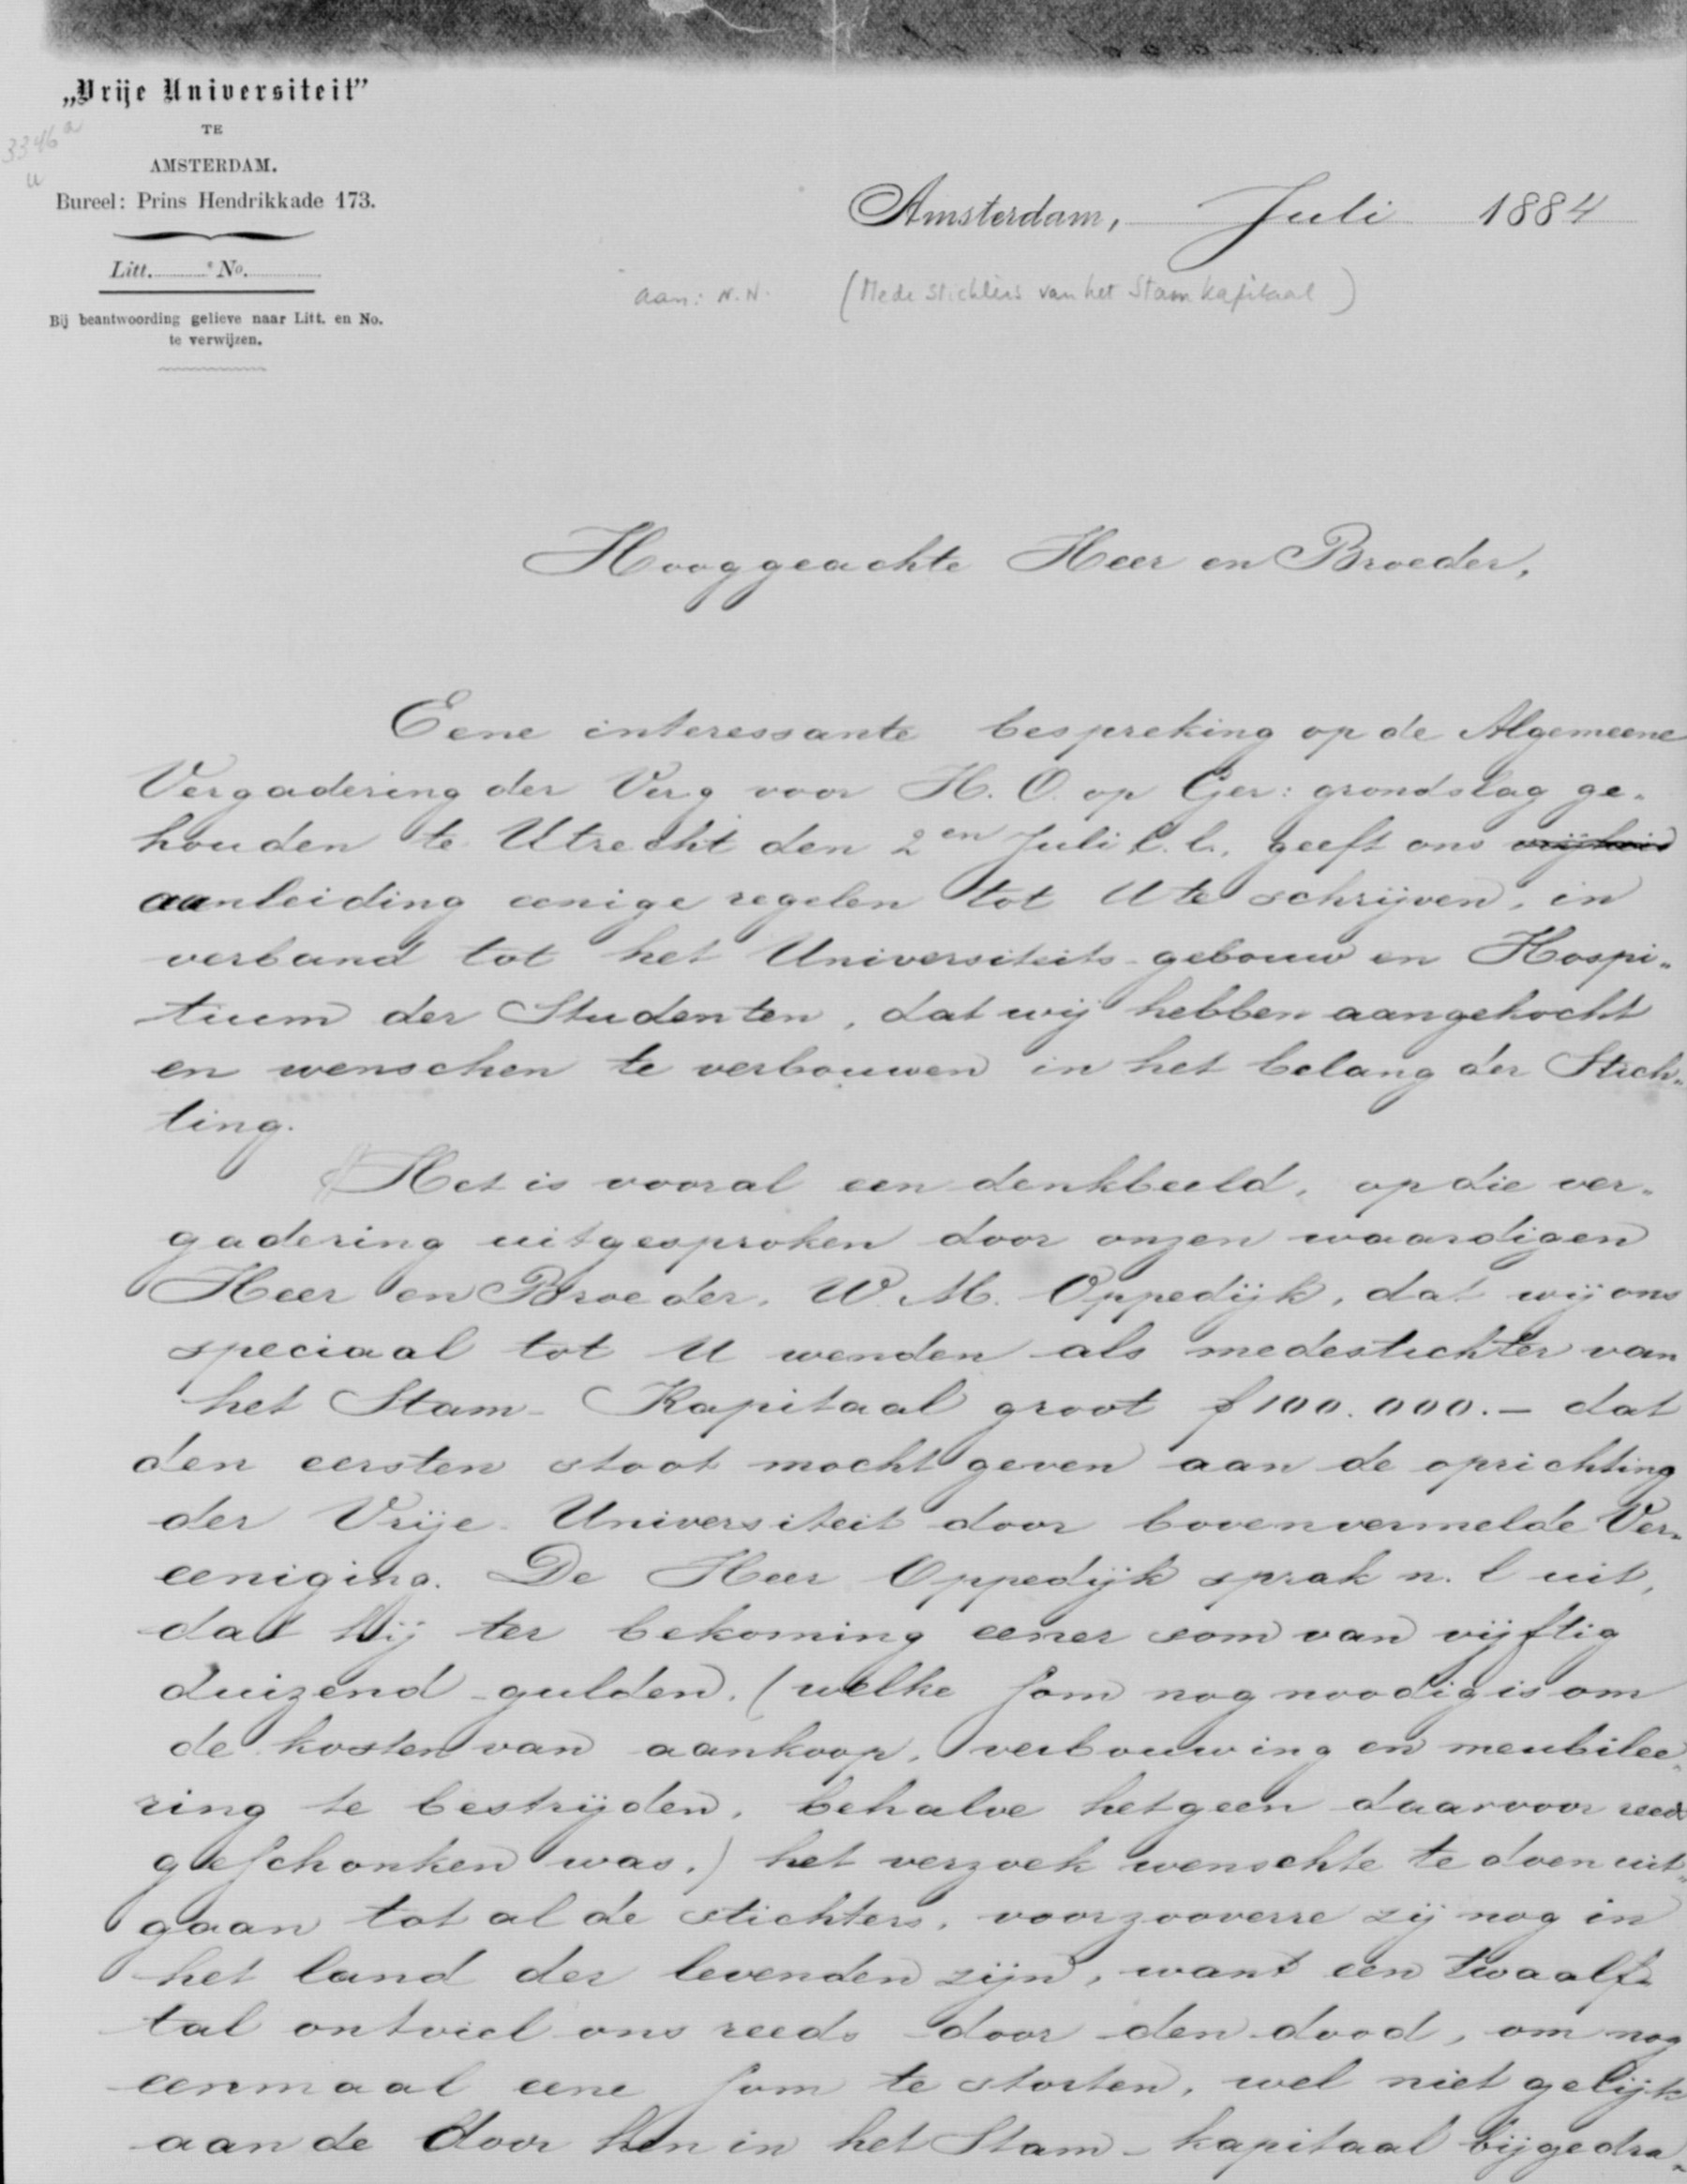 „Vrije Universiteit”
TE
AMSTERDAM.
Bureel: Prins Hendrikkade 173.
Litt. No.
Bij beantwoording gelieve naar Litt. en No.
te verwijzen.
3346 a
u
Amsterdam, Juli 1884
aan: N.N. (Mede stichters van het Stam kapitaal)
Hooggeachte Heer en Broeder,
Eene interessante bespreking op de Algemeene
Vergadering der Verg voor H. O. op Ger: grondslag ge„
houden te Utrecht den 2en Juli l.l., geeft ons
aanleiding eenige regelen tot U te schrijven, in
verband tot het Universiteits-gebouw en Hospi„
tium der Studenten, dat wij hebben aangekocht
en wenschen te verbouwen in het belang der Stich„
ting.
Het is vooral een denkbeeld, op die ver„
gadering uitgesproken door onzen waardigen
Heer en Broeder, W. M. Oppedijk, dat wij ons
speciaal tot U wenden als medestichter van
het Stam-Kapitaal groot ƒ100.000.— dat
den eersten stoot mocht geven aan de oprichting
der Vrije Universiteit door bovenvermelde Ver„
eeniging. De Heer Oppedijk sprak n. l uit,
dat hij ter bekoming eener som van vijftig
duizend gulden, (welke som nog noodig is om
de kosten van aankoop, verbouwing en meubilee„
ring te bestrijden, behalve hetgeen daarvoor reeds
geschonken was,) het verzoek wenschte te doen uit„
gaan tot al de stichters, voorzooverre zij nog in
het land der levenden zijn, want een twaalf„
tal ontviel ons reeds door den dood, om nog
eenmaal eene som te storten, wel niet gelijk
aan de door hen in het Stam-kapitaal bijgedra„